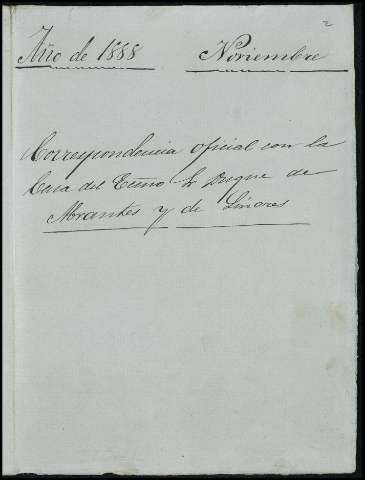 2
Año de 1888 Noviembre
Correspondencia oficial con la
Casa del Exmo Sr Duque de
Abrantes y de Linares